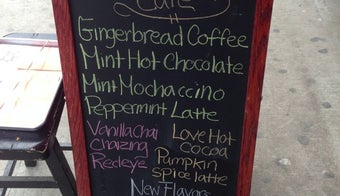 Cafe
Gingerbread Coffee
Mint Hot Chocolate
Mint Mochaccino
Peppermint Latte
Vanilla Chai
Chazing
Redeye
Love Hot
Cocoa
Pumpkin
Spice latte
New Flavors